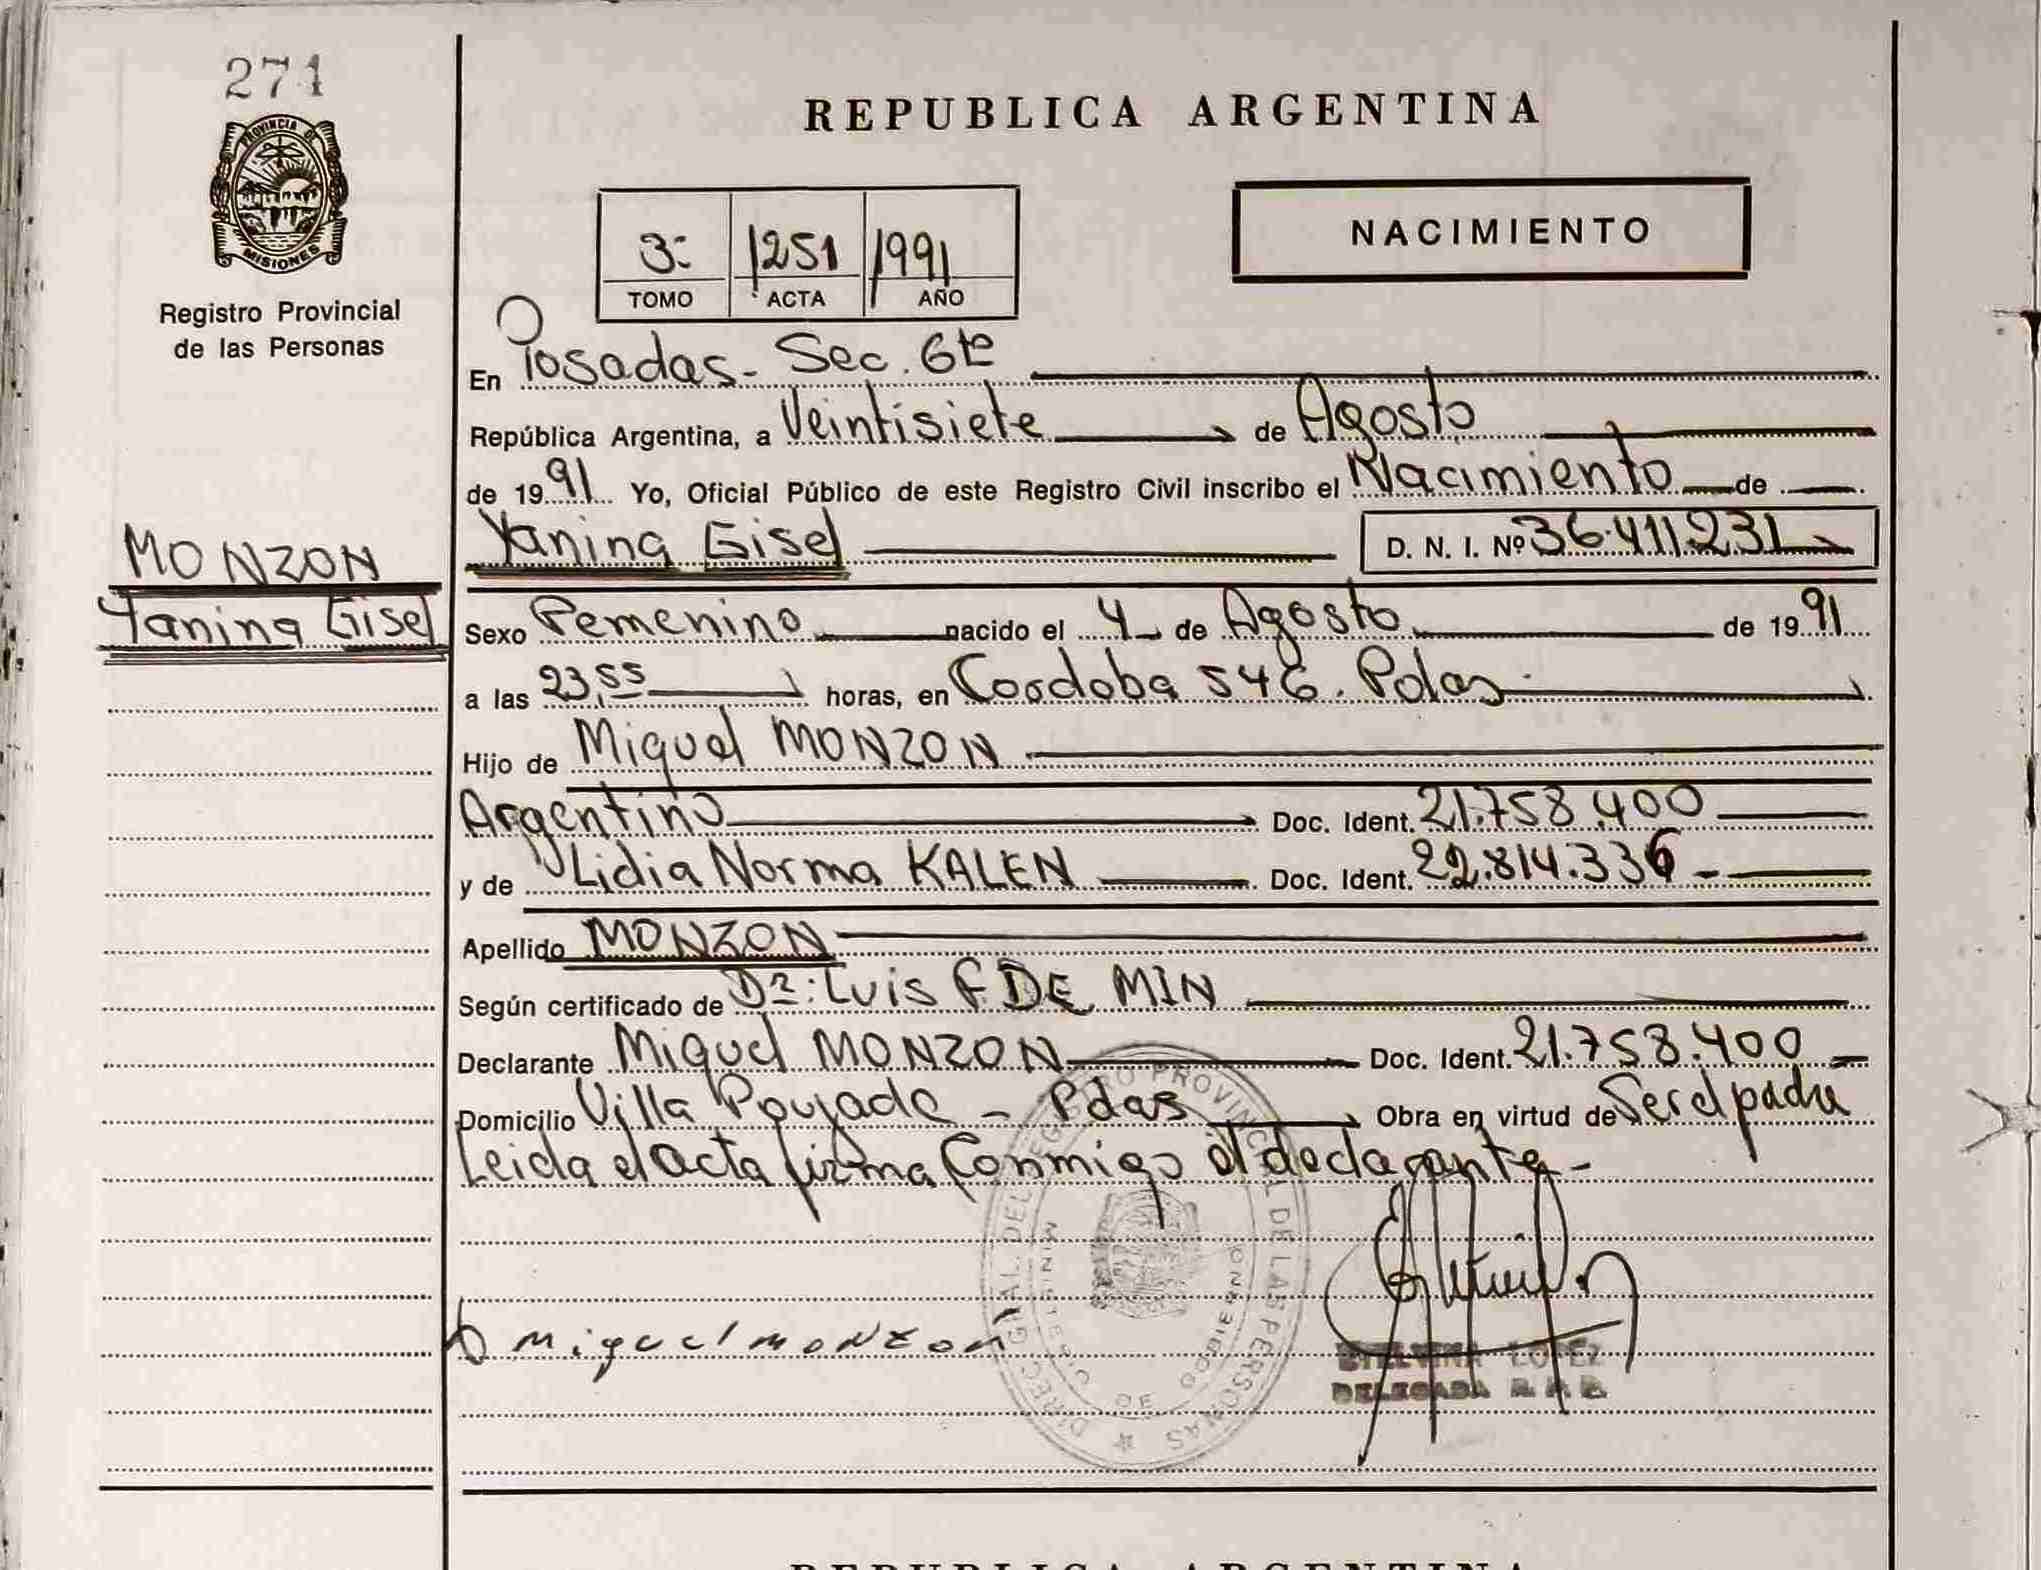 271
PROVINCIA DE
MISIONES
Registro Provincial
de las Personas
MONZON
Yanina Gisel
REPUBLICA ARGENTINA
NACIMIENTO
3- 1251 1991
TOMO ACTA AÑO
En Posadas - Sec. 6ta
República Argentina, a Veintisiete de Agosto
de 1991 Yo, Oficial Público de este Registro Civil inscribo el Nacimiento de
Yanina Gisel D. N. I. Nº 36.411.231
Sexo Femenino nacido el 4 de Agosto de 1991
a las 23,55 horas, en Cordoba 546. Pdas
Hijo de Miguel MONZON
Argentino Doc. Ident. 21.758.400
y de Lidia Norma KALEN Doc. Ident. 22.814.336
Apellido MONZON
Según certificado de Dr: Luis F. DE MIN
Declarante Miguel MONZON Doc. Ident. 21.758.400
Domicilio Villa Poujade - Pdas Obra en virtud de Ser el padre
Leida el acta firma Conmigo el declarante -
Miguel monzon
DIRECC. GRAL. DEL REGISTRO PROVINCIAL DE LAS PERSONAS
MINISTERIO DE GOBIERNO
ETELVINA LOPEZ
DELEGADA R. P. P.
REPUBLICA ARGENTINA